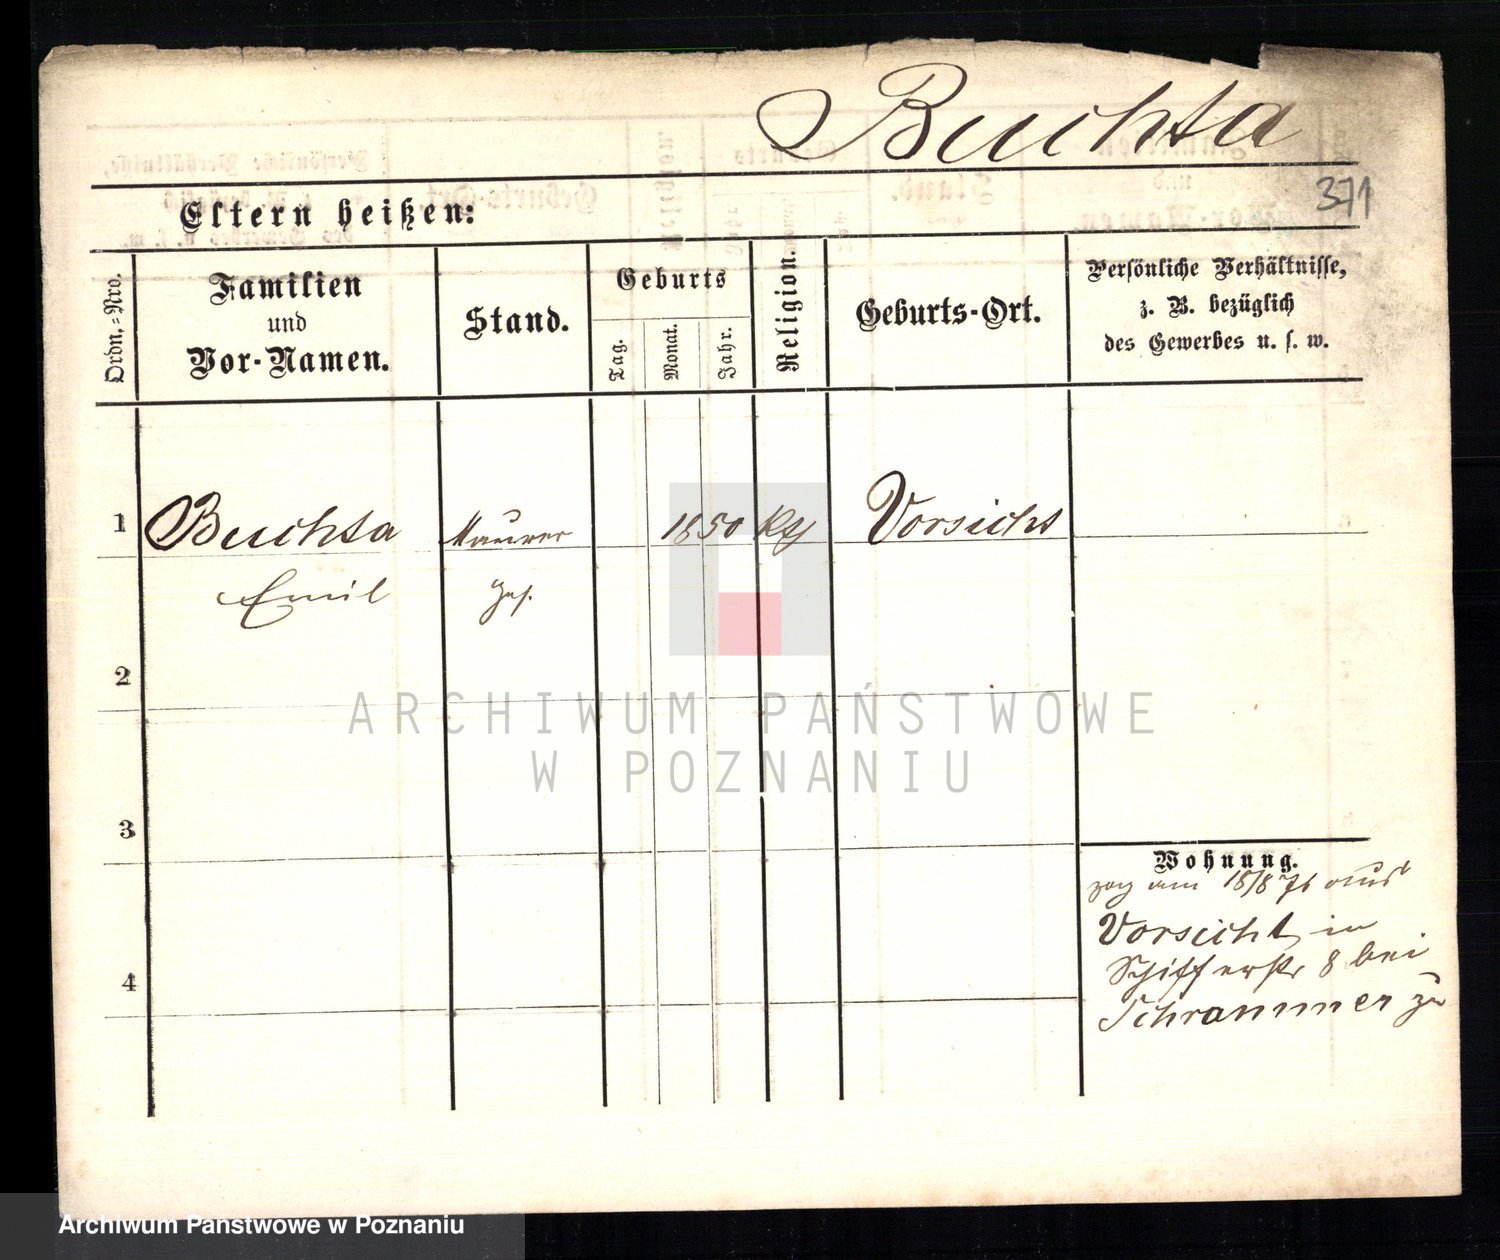 Buchta
371
Eltern heißen:
Ordn.-Nro.
Familien
und
Vor-Namen.
Stand.
Geburts
Tag.
Monat.
Jahr.
Religion.
Geburts-Ort.
Persönliche Verhältnisse,
z. B. bezüglich
des Gewerbes u. s. w.
1
Buchta
Maurer
1850
Kth
Vorsicht
Emil
Ges.
2
3
4
Wohnung.
zog am 18/8 76 aus
Vorsicht in
Schifferstr 8 bei
Schrammer zu
ARCHIWUM PAŃSTWOWE
W POZNANIU
Archiwum Państwowe w Poznaniu